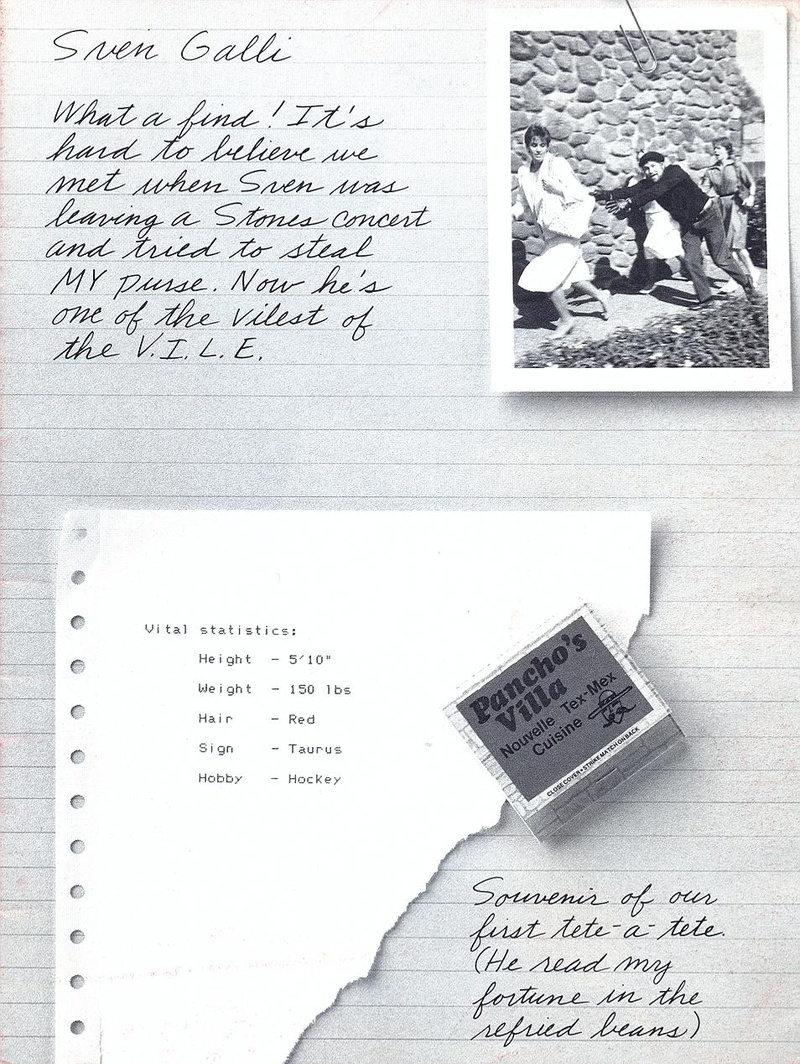 Sven Galli
What a find! It's
hard to believe we
met when Sven was
leaving a Stones concert
and tried to steal
MY purse. Now he's
one of the vilest of
the V.I.L.E.
Vital statistics:
Height - 5'10"
Weight - 150 lbs
Hair - Red
Sign - Taurus
Hobby - Hockey
Pancho's
Villa
Nouvelle Tex-Mex
Cuisine
CLOSE COVER • STRIKE MATCH ON BACK
Souvenir of our
first tete-a-tete.
(He read my
fortune in the
refried beans)